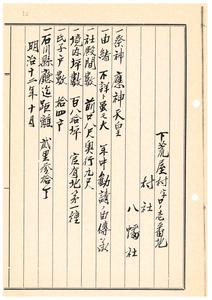 下荒屋村字ロ壱番地
村社
八幡社
一祭神 應神天皇
一由緒 不詳 年中勧請ノ由傳フ
一社殿間数 前口八尺奥行九尺
一境内坪数 百八拾坪 官有地第一種
一氏子戸数 拾四戸
一石川縣廳迄距離 貳里
明治十二年十月